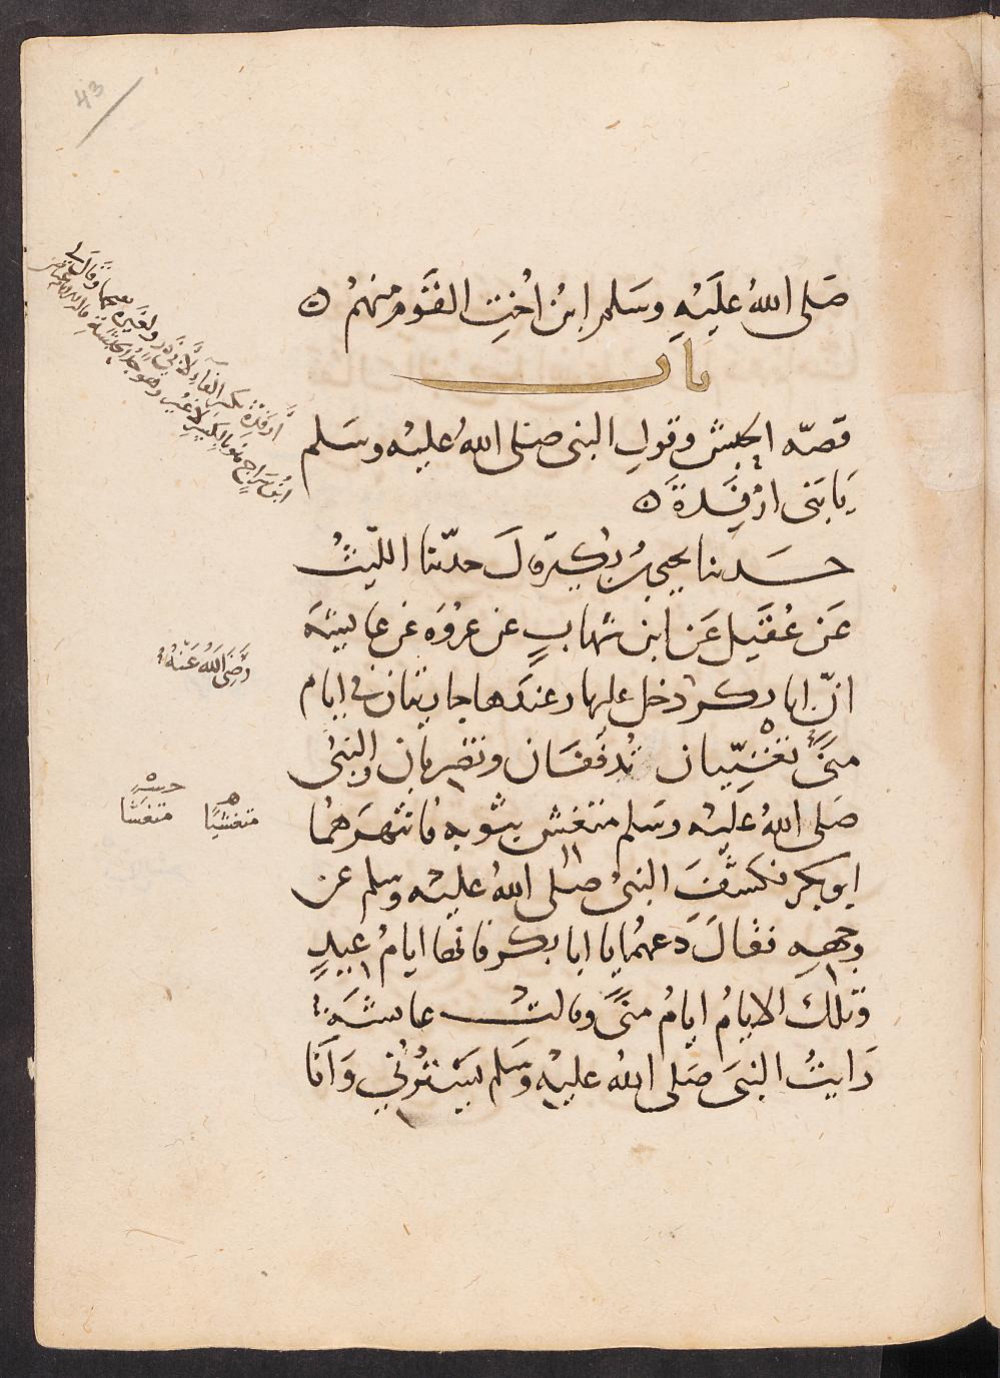 43
صَلى اللهُ علَيْهِ وسَلم ابنُ اُختِ القَومِ منهمْ ه
باب
قصّه الحبش وقولِ النبى صلى اللهُ عليْه وسَلم
يَا بَنى ارْفِدَةَ ه
حـدثنا يحيى بنُ بكير قالَ حدّثنا الليثُ
عَن عُقَيل عَن ابن شهابٍ عن عروَة عَن عايشة
انّ ابا بكر دخل عليها وعندها جاريتان فى ايام
منًى تغنّيان تُدفّفان وتضربان والنبىُ
صَلى اللهُ عليْه وسَلم متغش بثوبه فانتهرَهما
ابو بكر فكشَفَ النبىُ صلى اللهُ عليْه وسلم عن
وجههِ فقالَ دَعهُما يا ابا بكر فانها ايامُ عيدٍ
وتلك الايامُ ايامُ منًى وقالتْ عايشَة
رَايتُ النبىَ صَلى اللهُ عليْه وسَلم يَسْتُرُني وَاَنَا
اَرفدة بكسر الفاء لابى ذر ولغيره بفتحها وقال لى
ابن سراج هو بالكسر لا غير وهو جد الحبشة
رَضِىَ اللهُ عَنْهُ
متغشيًا
متغشا